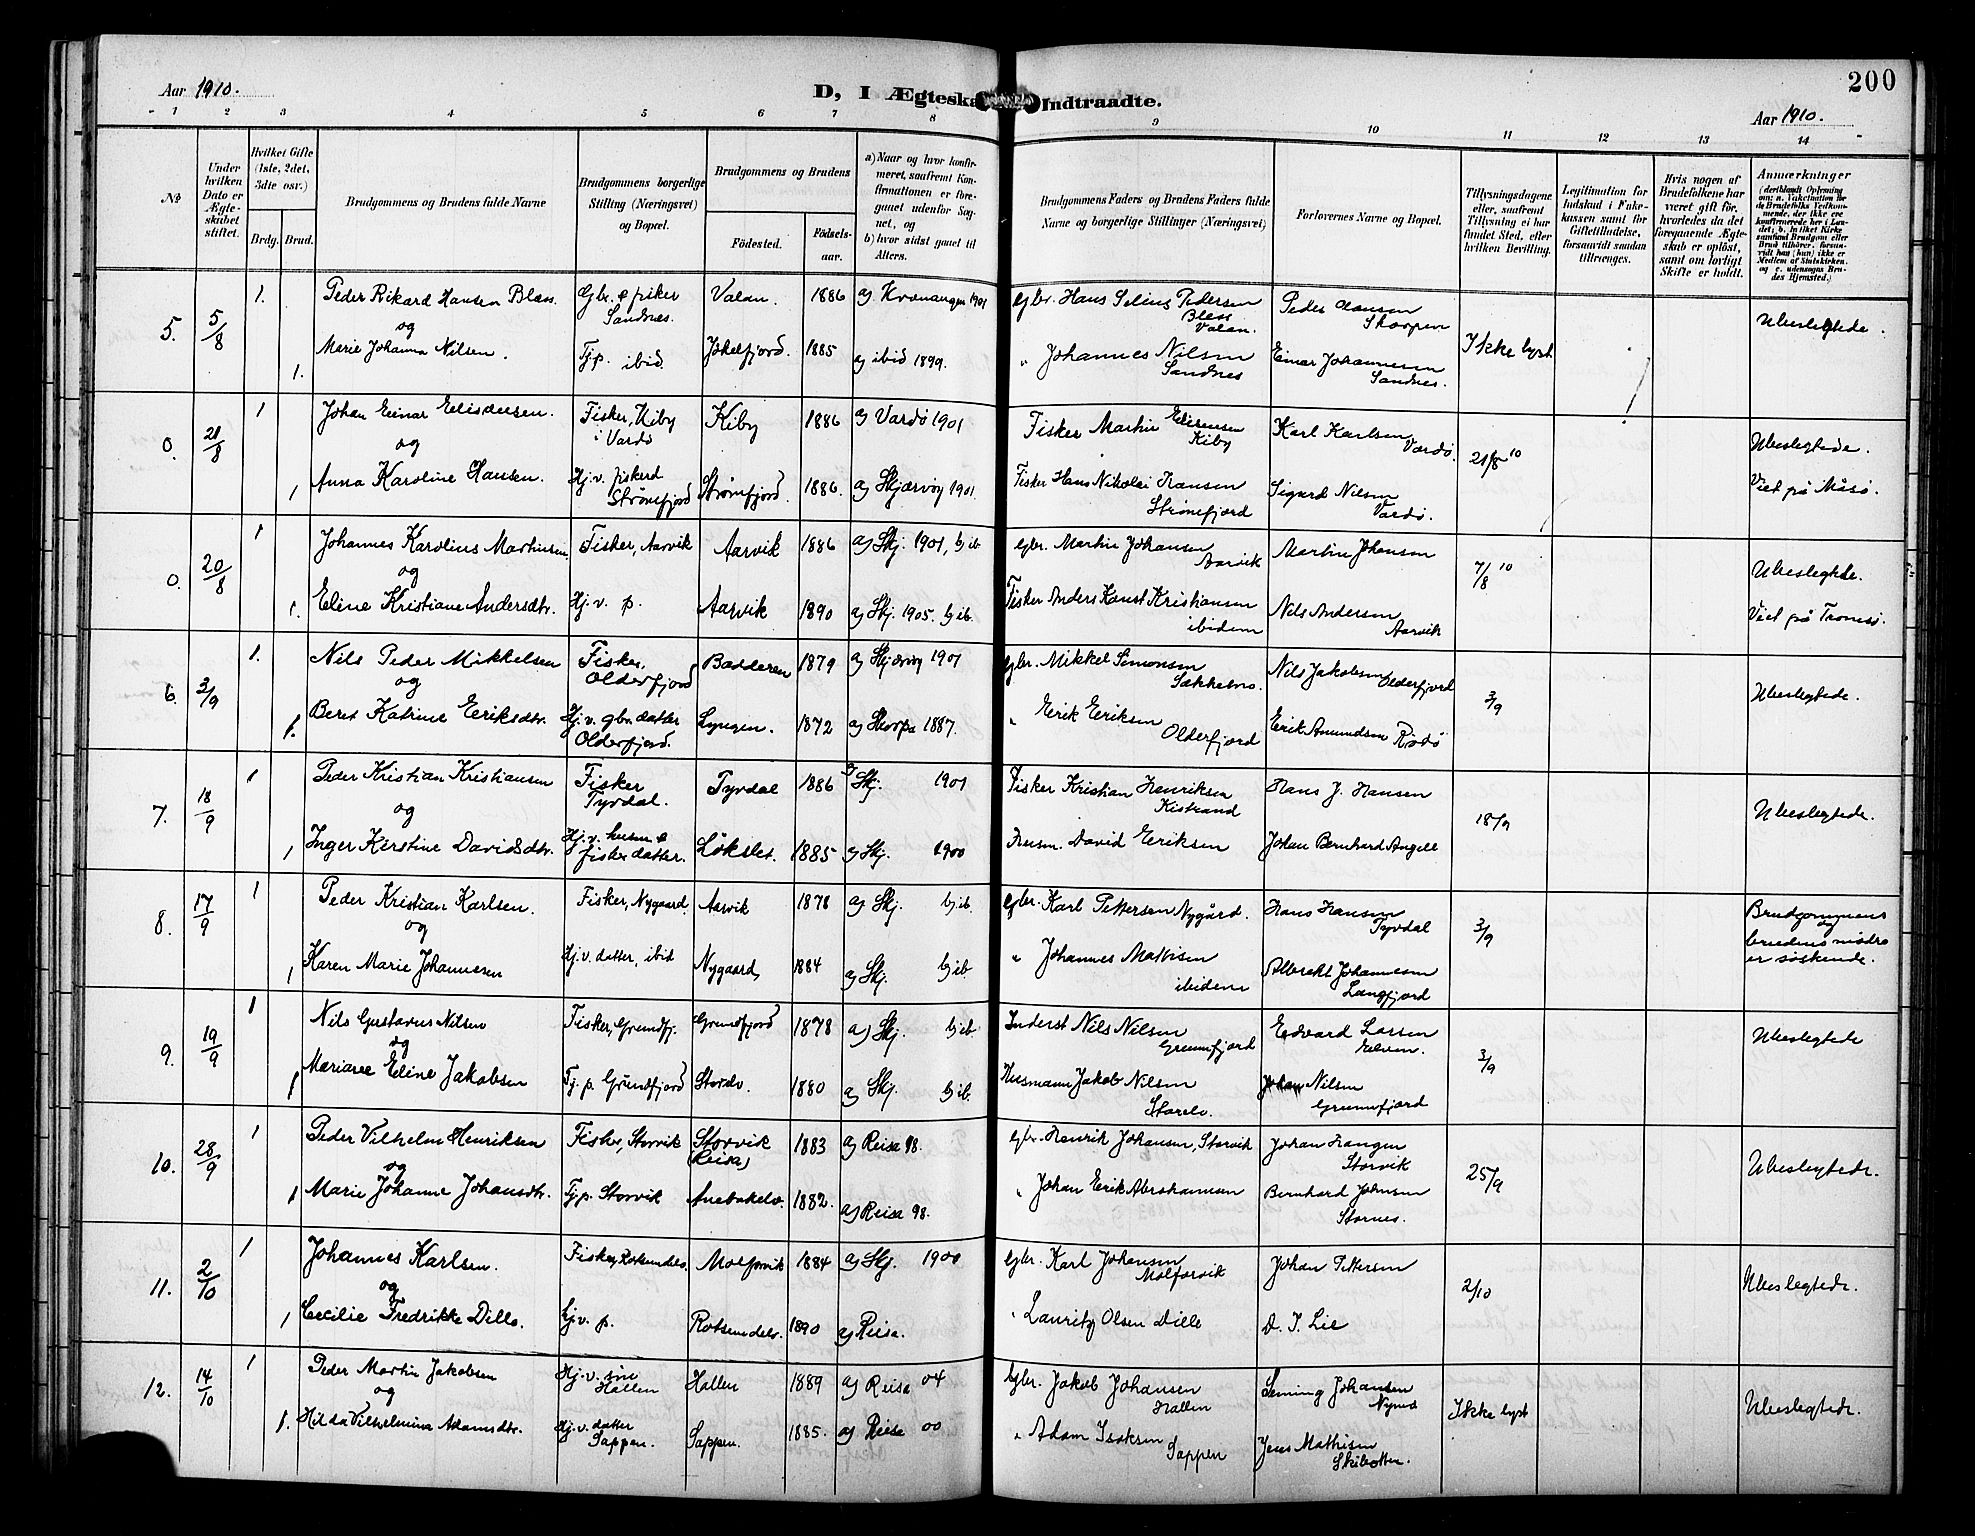 Aar 1910.
D, I Ægteska Indtraadte.
200
Aar 1910.
1 2 3 4 5 6 7 8 9 10 11 12 13 14
No
Under hvilken Dato er Ægteskabet stiftet.
Hvilket Gifte (1ste, 2det, 3dte osv.)
Brdg. Brud.
Brudgommens og Brudens fulde Navne
Brudgommens borgerlige Stilling (Næringsvei) og Bopæl.
Brudgommens og Brudens
Fødested.
Fødselsaar.
a) Naar og hvor konfirmeret, saafremt Konfirmationen er foregaaet udenfor Sognet, og
b) hvor sidst gaaet til Alters.
Brudgommens Faders og Brudens Faders fulde Navne og borgerlige Stillinger (Næringsvei)
Forlovernes Navne og Bopæl.
Tillysningsdagene eller, saafremt Tillysning ei har fundet Sted, efter hvilken Bevilling.
Legitimation for Indskud i Enkekassen samt for Giftetilladelse, forsaavidt saadan tiltrænges.
Hvis nogen af Brudefolkene har været gift før, hvorledes da det foregaaende Ægteskab er opløst, samt om lovligt Skifte er holdt.
Anmærkninger
5. 5/8 1. Peder Rikard Hansen Bless Gbr. & fisker Sandnes. Valan. 1886 a) Kvænangen 1901 Gbr. Hans Selius Pedersen Bless Valan. Peder Hansen Skorpen Ikke lyst Ubeslegtede.
og
1. Marie Johanna Nilsen. Tj.p. ibid. Jøkelfjord. 1885 a) ibid 1899. " Johannes Nilsen Sandnes Einar Johannesen Sandnes.
0. 21/8 1 Johan Einar Elisæusen. Fisker, Kiby i Vardø Kiby 1886 a) Vardø 1901 Fisker Martin Kiby Karl Karlsen Vardø. 21/8 10 Ubeslegtede.
og
1 Anna Karoline Hansen. Hj.v. fiskerd Strømfjord Strømfjord. 1886. a) Skjærvøy 1901. Fisker Hans Nikolai Hansen Strømfjord Sigurd Nilsen Vardø. Viet på Måsø.
0. 20/8 1 Johannes Karolius Martinsen Fisker, Aarvik Aarvik 1886 a) Skj. 1901, b) ib. Gbr. Martin Johansen Aarvik Martin Johansen 7/8 10 Ubeslegtede.
og
1. Eline Kristiane Andersdtr. Hj.v. p. Aarvik 1890 a) Skj. 1905. b) ib. Fisker Anders Kanst Kristiansen ibidem Nils Andersen Aarvik Viet på Tromsø.
6. 3/9 1. Nils Peder Mikkelsen Fisker. Olderfjord Badderen 1879 a) Skjærvøy 1901 Gbr. Mikkel Simonsen Sækkelnes. Nils Jakobsen Olderfjord 3/9 Ubeslegtede.
og
1. Beret Katrine Eriksdtr. Hj.v. gbr. datter Olderfjord. Lyngen. 1872 a) Skorpa 1887. " Erik Eriksen Olderfjord Erik Amundsen Rødø
7. 18/9 1 Peder Kristian Kristiansen Fisker Tyvdal. Tyvdal 1886 a) Skj. 1901 Fisker Kristian Henriksen Kistrand Hans J. Hansen 18/9 Ubeslegtede.
og
1 Inger Kerstine Davidsdtr. Hj.v. husm & fisker datter. Løkslet. 1885 a) Skj. 1900 Husm. David Eriksen Johan Bernhard Angell
8. 17/9 1 Peder Kristian Karlsen. Fisker, Nygaard Aarvik 1878 a) Skj. b) ib. Gbr. Karl Pettersen Nygård. Hans Hansen Tyvdal 3/9 Brudgommens og brudens mødre er søskende.
og
1 Karen Marie Johannesen Hj.v. datter, ibid Nygaard, 1884 a) Skj. b) ib " Johannes Mathisen ibidem Albrekt Johannesen Langfjord
9. 19/9 1 Nils Gustavus Nilsen Fisker, Grundfj. Grundfjord 1878 a) Skj. b) ib. Inderst Nils Nilsen Grunnfjord Edvard Larsen Elven. 3/9 Ubeslegtede
og
1 Mariane Eline Jakobsen Tj.p. Grundfjord Storelv. 1880 a) Skj. b) ib. Husmann Jakob Nilsen Storelv. Johan Nilsen Grunnfjord
10. 28/9 1 Peder Vilhelm Henriksen Fisker, Storvik Storvik (Reisa) 1883 a) Reisa 98. Gbr. Henrik Johansen, Storvik Johan Hangen Storvik 25/9 Ubeslegtede.
og
1 Marie Johanne Johansdtr. Tj.p. Storvik 1882. a) Reisa 98. " Johan Erik Abrahamsen Bernhard Johnsen Stornes.
11. 2/10 1 Johannes Karlsen. Fisker, Rotsundelv. Molforvik 1884 a) Skj. 1900 Gbr. Karl Johansen Molforvik Johan Pettersen 2/10 Ubeslegtede.
og
1 Cecilie Fredrikke Dille. Hj.v. p. Rotsundelv. 1890 a) Reisa. " Lauritz Olsen Dille D. I. Lie
12. 14/10 1 Peder Martin Jakobsen Hj.v. søn Hallen Hallen 1889 a) Reisa 04 Gbr. Jakob Johansen Hallen Johansen Ikke lyst Ubeslegtede.
og
1. Hilda Vilhelmina Adamsdtr. Hj.v. datter Sappen. Sappen. 1885. a) Reisa 00 " Adam Isaksen Sappen Jens Mathisen Skibotten.